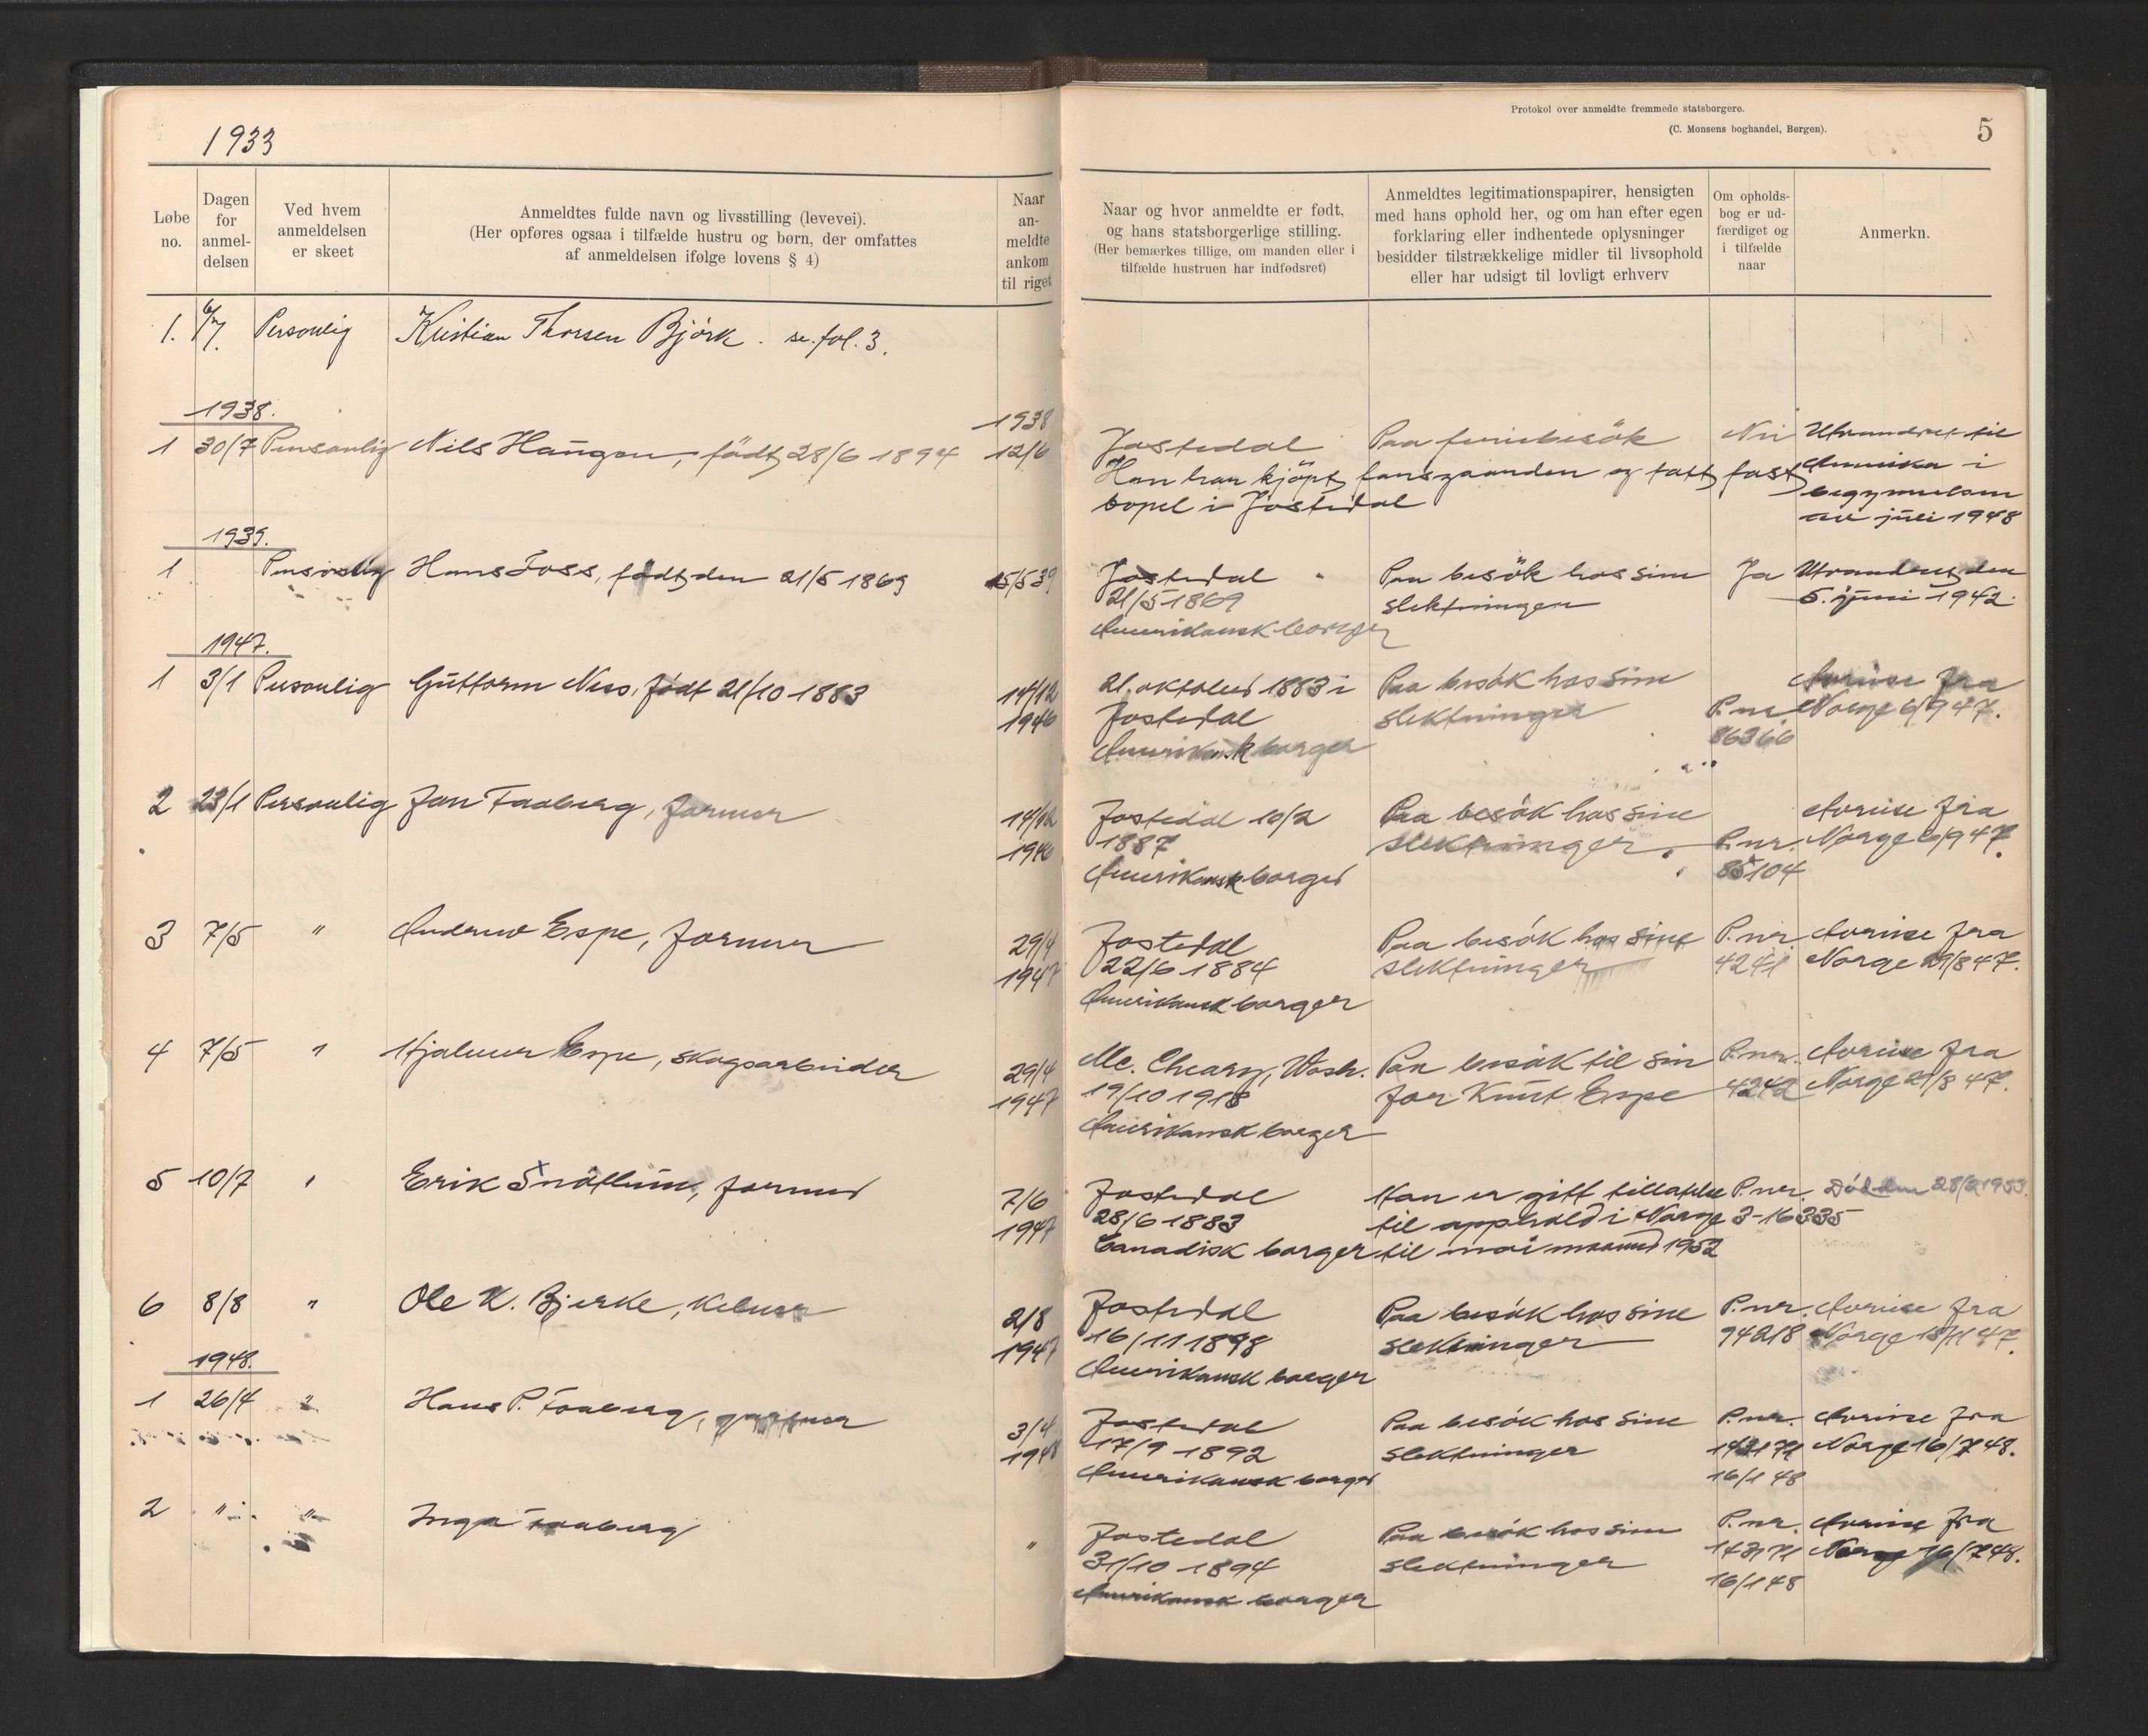 1933
Protokol over anmeldte fremmede statsborgere.
(C. Monsens boghandel, Bergen).
5
Løbe no.
Dagen for anmel-delsen
Ved hvem anmeldelsen er skeet
Anmeldtes fulde navn og livsstilling (levevei).
(Her opføres ogsaa i tilfælde hustru og børn, der omfattes
af anmeldelsen ifølge lovens § 4)
Naar an-meldte ankom til riget
Naar og hvor anmeldte er født,
og hans statsborgerlige stilling.
(Her bemærkes tillige, om manden eller i
tilfælde hustruen har indfødsret)
Anmeldtes legitimationspapirer, hensigten
med hans ophold her, og om han efter egen
forklaring eller indhentede oplysninger
besidder tilstrækkelige midler til livsophold
eller har udsigt til lovligt erhverv
Om opholds-
bog er ud-
færdiget og
i tilfælde
naar
Anmerkn.
1. Personlig Kristian Thorsen Björk. se. fol. 3.
1938.
1938
1 30/7 Personlig Nils Haugen, födt 28/6 1894 12/6
Jostedal Paa feriebesök Nei Utvandret til
Han har kjöpt farsgaarden og tatt fast Amerika i
bopel i Jostedal begynnelsen
av juli 1948
1939.
1 Personlig Hans Foss, födt den 21/5 1869 15/5 39
Jostedal Paa besök hos sine Ja Utvandret den
21/5 1869 slektninger 5. juni 1942.
Amerikansk borger
1947.
1 3/1 Personlig Guttorm Ness, födt 21/10-1883 14/12
1946
21. oktober 1883 i Paa besök hos sine Avreise fra
Jostedal slektninger P.nr. Norge 6/9 47.
Amerikansk borger 86366
2 23/1 Personlig Jan Faaberg, farmer 14/12
1946
Jostedal 10/2 Paa besök hos sine Avreise fra
1887 slektninger. P.nr. Norge 6/9 47.
Amerikansk borger 85104
3 7/5 " Andrew Espe, farmer 29/4
1947
Jostedal Paa besök hos sine P.nr. Avreise fra
22/6 1884 slektninger 4241 Norge 29/8 47.
Amerikansk borger
4 7/5 " Hjalmer Espe, skogsarbeider 29/4
1947
Mc. Cleary, Wash. Paa besök til sin P.nr. Avreise fra
19/10 1918 far Knut Espe 4242 Norge 29/8 47.
Amerikansk borger
5 10/7 " Erik Snötun, farmer 7/6
1947
Jostedal Han er gitt tillatelse P.nr. Död den 28/2 1953.
28/6 1883 til opphold i Norge 3-16335
Canadisk borger til mai maaned 1952
6 8/8 " Ole K. Bjerke, kelner 2/8
1947
Jostedal Paa besök hos sine P.nr. Avreise fra
16/11 1898 slektninger 94218 Norge 15/11 47.
Amerikansk borger
1948.
1 26/4 " Hans P. Faaberg, 3/4
1948
Jostedal Paa besök hos sine P.nr. Avreise fra
17/9 1892 slektninger Norge 16/7 48.
Amerikansk borger 16/1 48
2 " " Inga Faaberg "
Jostedal Paa besök hos sine P.nr. Avreise fra
31/10 1894 slektninger Norge 16/7 48.
Amerikansk borger 16/1 48